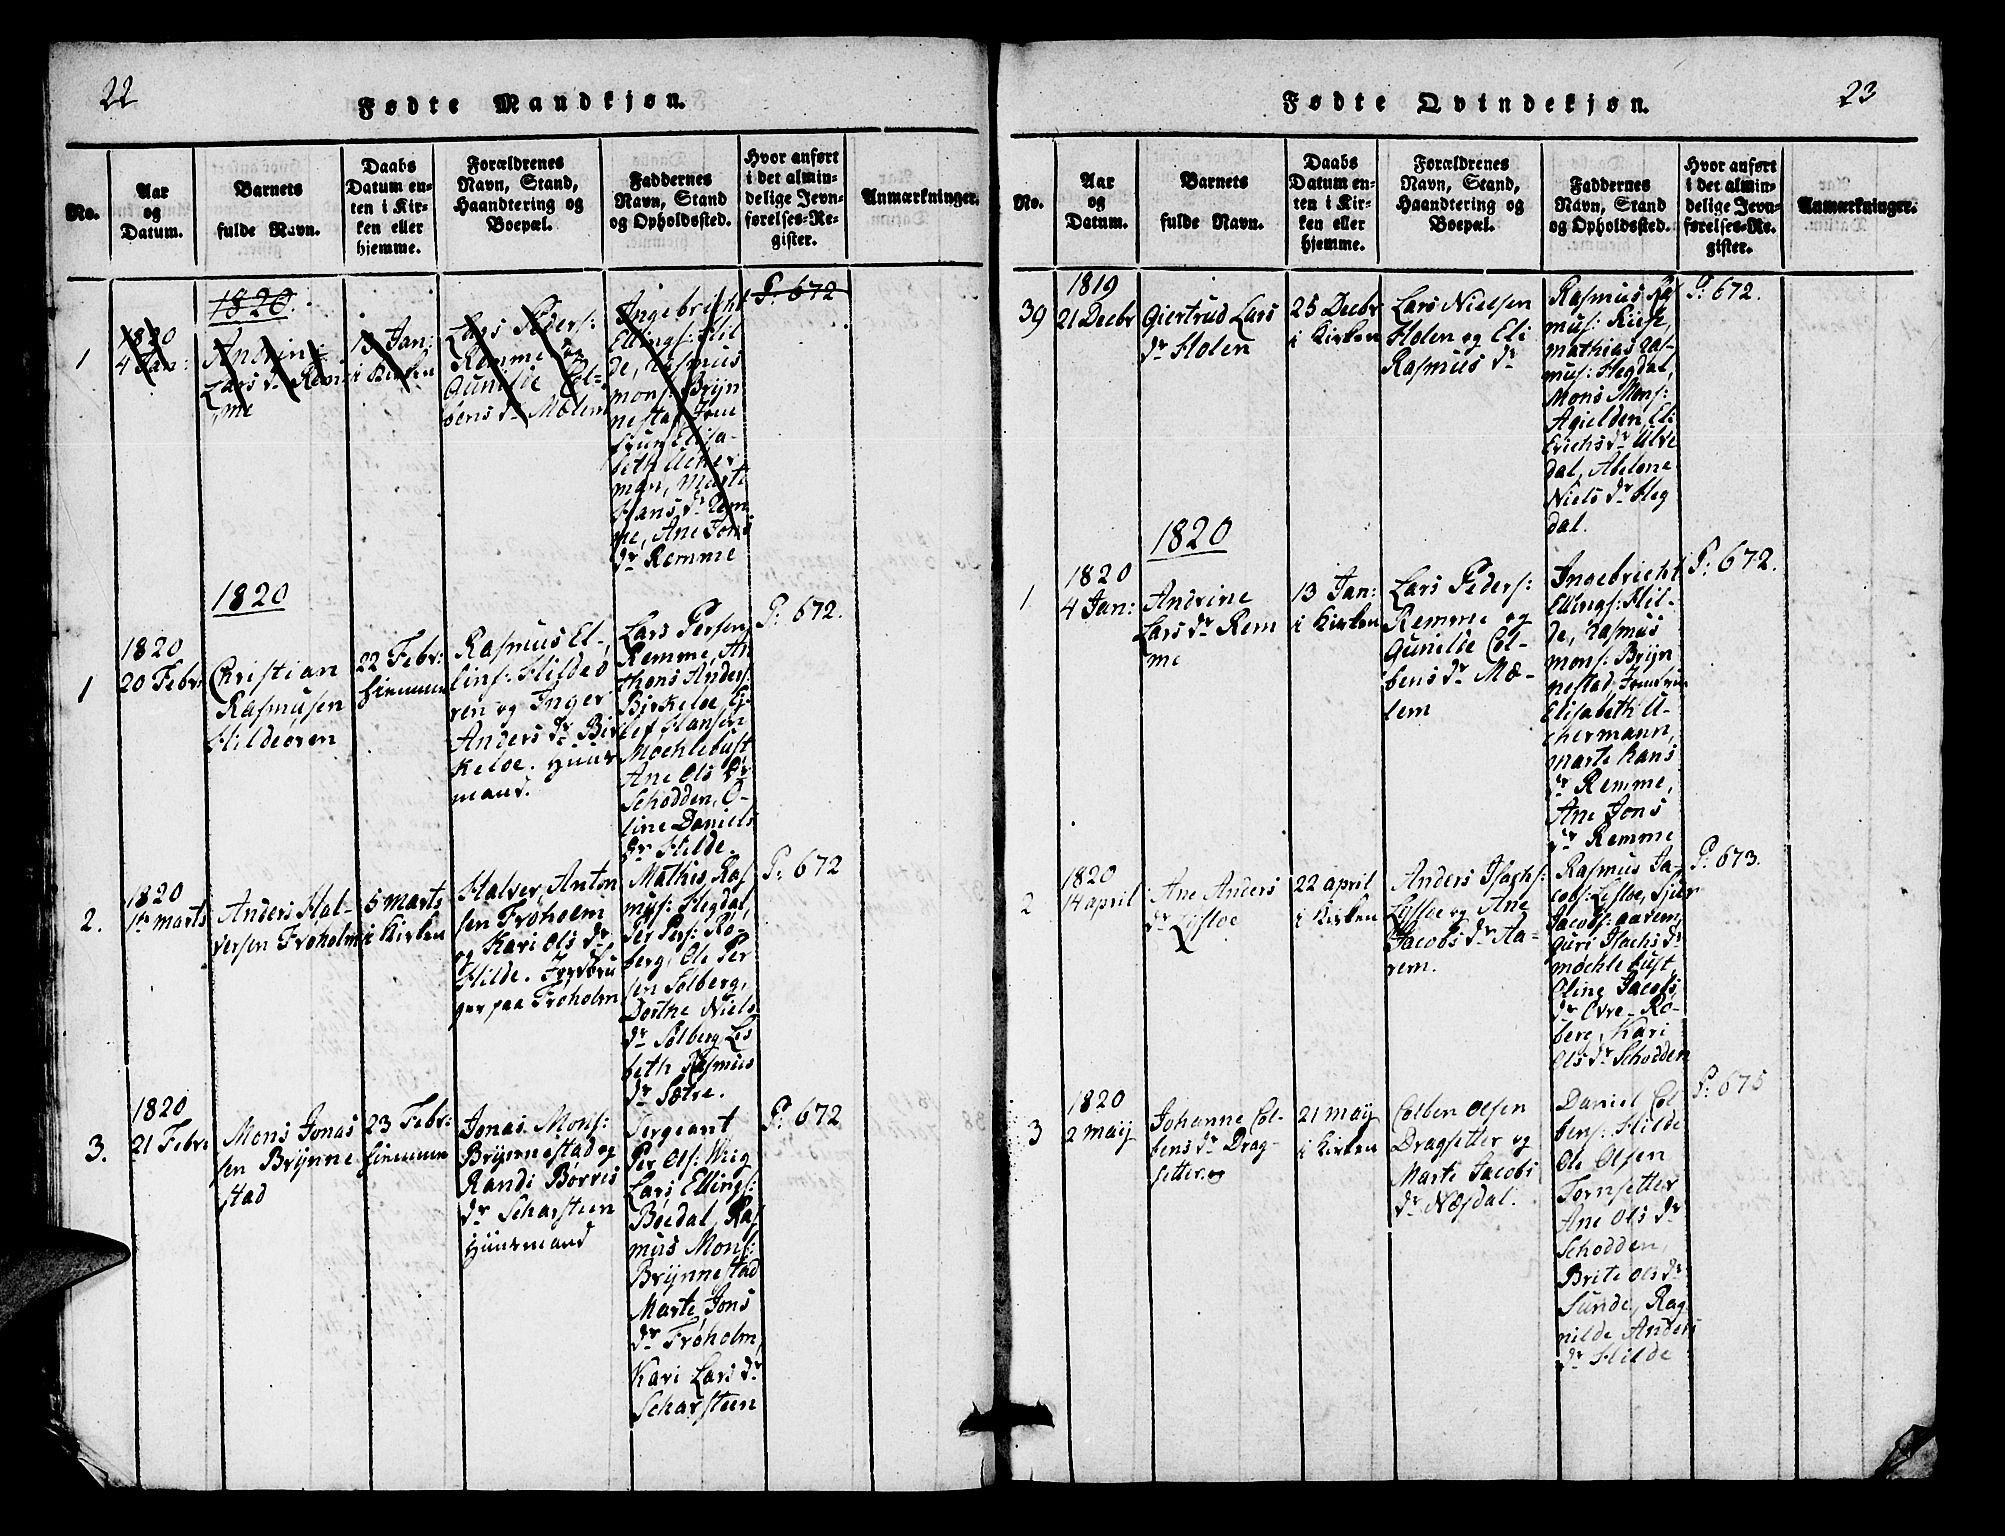 22
Fødte Mandkjøn.
No.
Aar
og
Datum.
Barnets
fulde Navn.
Daabs
Datum en-
ten i Kir-
ken eller
hjemme.
Forældrenes
Navn, Stand,
Haandtering og
Boepæl.
Faddernes
Navn, Stand
og Opholdssted.
Hvor anført
i det almin-
delige Jevn-
førelses-Re-
gister.
Anmærkninger.
1820.
1
1820
4 Jan:
Andrine
Lars dr Rem
me
13 Jan:
i Kirken
Lars Peders:
Remme og
Gunilde Col-
bens dr Mælem
Ingebricht
Ellings: Hil
de, Rasmus
mons: Brÿn
nestad, Jom
fru Elisa-
beth Acker
man, Marte
Hans dr Rem
me, Ane Jons
dr Remme
P: 672
1820
1
1820
20 Febr:
Christian
Rasmusen
Hildeøren
22 Febr:
hiemme
Rasmus El-
lins: Hildeø
ren og Inger
Anders dr Bir
keloe. Huus
mand.
Lars Persen
Remme, An
thons Anders:
Birkeloe, E-
lef Hansen
Møchlebust
Ane Ols dr
Schodden, O-
line Daniels
dr Hilde.
P: 672.
2.
1820
1te marts
Anders Hal-
versen Frøholm
5 marts
i Kirken
Halver Anton
sen Frøholm
og Kari Ols dr
Hilde.
ger paa Frøholm
Mathis Ras
mus: Hegdal,
Per Pers: Rø-
berg, Ole Per
sen Solberg,
Dorthe Niels
dr Solberg Lis
beth Rasmus
dr Sætre.
P: 672
3.
1820
21 Febr:
Mons Jonas
sen Brÿnne
stad
23 Febr:
hiemme
Jonas Mons:
Brÿnnestad og
Randi Børres
dr Scharsteen
Huusmand
Sergeant
Per Ols: Wiig
Lars Ellings:
Bøedal, Ras
mus Mons:
Brÿnnestad
Marte Jons
dr Frøholm,
Kari Lars dr
Scharsteen
P: 672
23
Fødte Qvindekjøn.
No.
Aar
og
Datum.
Barnets
fulde Navn.
Daabs
Datum en-
ten i Kir-
ken eller
hjemme.
Forældrenes
Navn, Stand,
Haandtering og
Boepæl.
Faddernes
Navn, Stand
og Opholdssted.
Hvor anført
i det almin-
delige Jevn-
førelses-Re-
gister.
Anmærkninger.
39
1819
21 Decbr
Giertrud Lars
dr Holen
25 Decbr
i Kirken
Lars Nielsen
Holen og Eli
Rasmus dr
Rasmus Ra
mus:
mathias Ras
mus: Hegdal,
Mons Mons:
Agielden, Eli
Erichs dr Ulve
dal, Abelone
Niels dr Heg
dal.
P: 672.
1820
1
1820
4 Jan:
Andrine
Lars dr Rem
me
13 Jan:
i Kirken
Lars Peders:
Remme og
Gunilde Col-
bens dr Mæ-
lem
Ingebricht
Ellings: Hil-
de, Rasmus
mons: Brÿn
nestad, Jomfrue
Elisabeth A-
chermann,
marte hans
dr Remme,
Ane Jons
dr Remme
P: 672.
2
1820
14 april
Ane Anders
dr Lÿsloe
22 april
i Kirken
Anders Isachs:
Lÿsloe og Ane
Jacobs dr Aa-
rem.
Rasmus Ja-
cobs: Lisloe, Siur
Jacobs: aarem,
Guri Isachs dr
møchlebust,
Oline Jacobs
dr Øvre-Rø-
berg, Kari
Ols dr Schodden
P: 673.
3
1820
2 maÿ
Johanne Col-
bens dr Drag-
setter.
21 maÿ
i Kirken
Colben Olsen
Dragsetter og
Marte Jacobs
dr Næsdal.
Daniel Col
bens: Hilde
Ole Olsen
Tornsetter
Ane Ols dr
Schodden,
Brite Ols dr
Sunde, Rag
nilde Anders
dr Hilde
P: 675